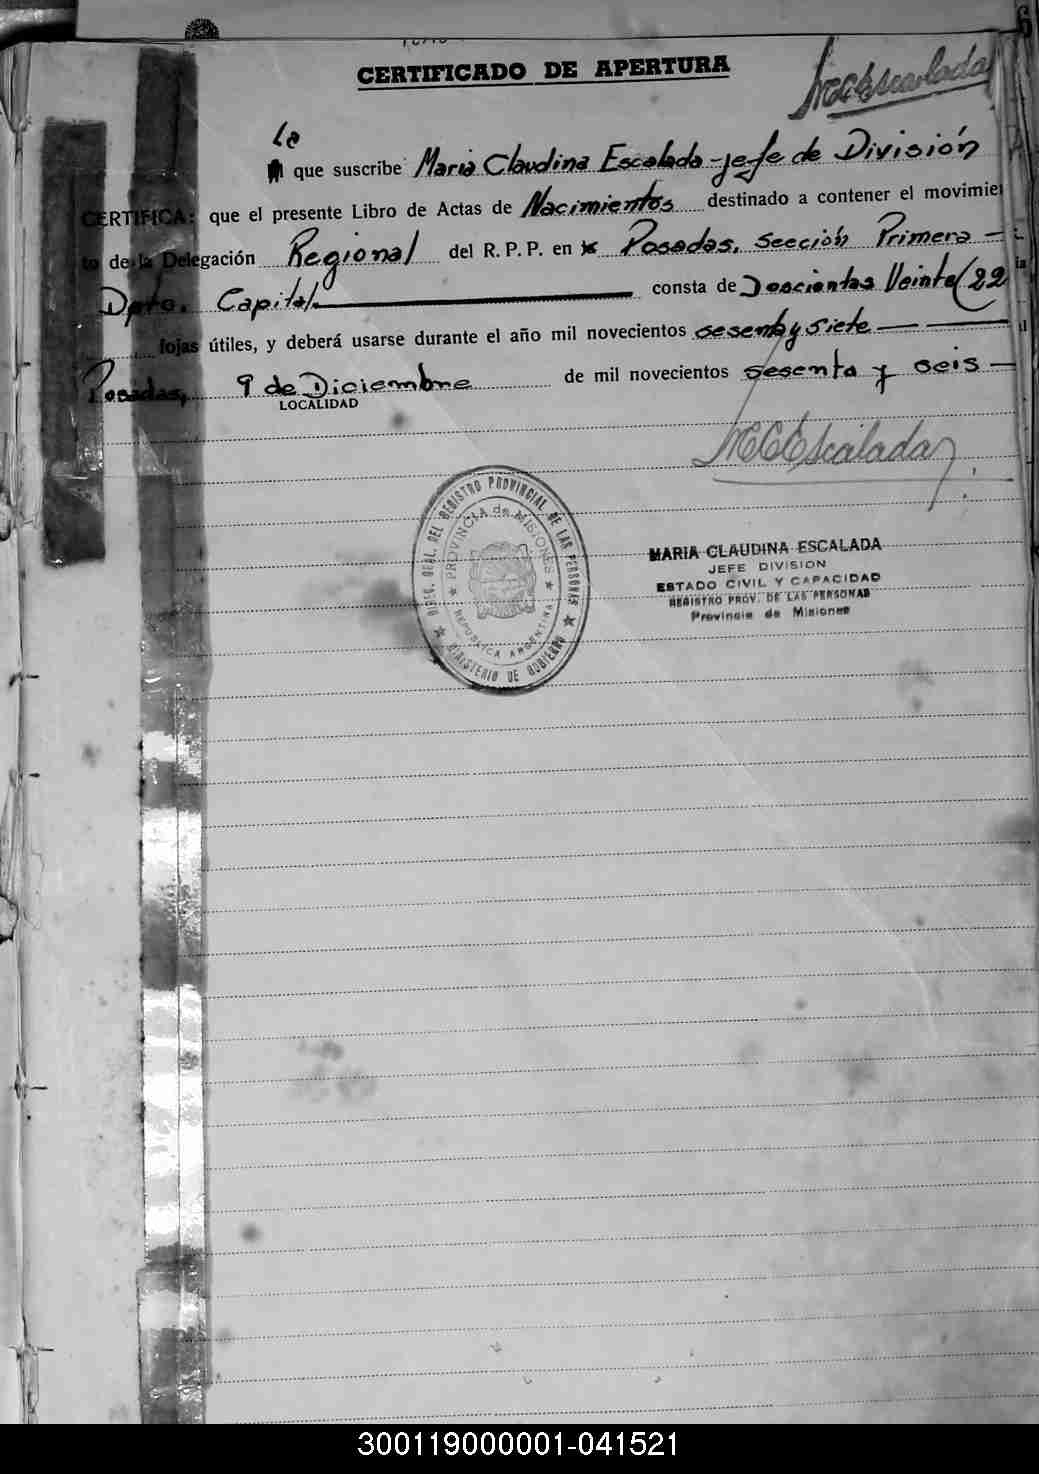 CERTIFICADO DE APERTURA
MCCEscalada
La
que suscribe Maria Claudina Escalada - jefe de División
CERTIFICA: que el presente Libro de Actas de Nacimientos destinado a contener el movimie
to de la Delegación Regional del R. P. P. en Posadas, sección Primera -
Dpto. Capital. consta de Doscientas Veinte (22
fojas útiles, y deberá usarse durante el año mil novecientos sesenta y siete
Posadas, 9 de Diciembre de mil novecientos sesenta y seis
LOCALIDAD
MCCEscalada
DIREC. GRAL. DEL REGISTRO PROVINCIAL DE LAS PERSONAS
PROVINCIA de MISIONES
REPUBLICA ARGENTINA
MINISTERIO DE GOBIERNO
MARIA CLAUDINA ESCALADA
JEFE DIVISION
ESTADO CIVIL Y CAPACIDAD
REGISTRO PROV. DE LAS PERSONAS
Provincia de Misiones
300119000001-041521